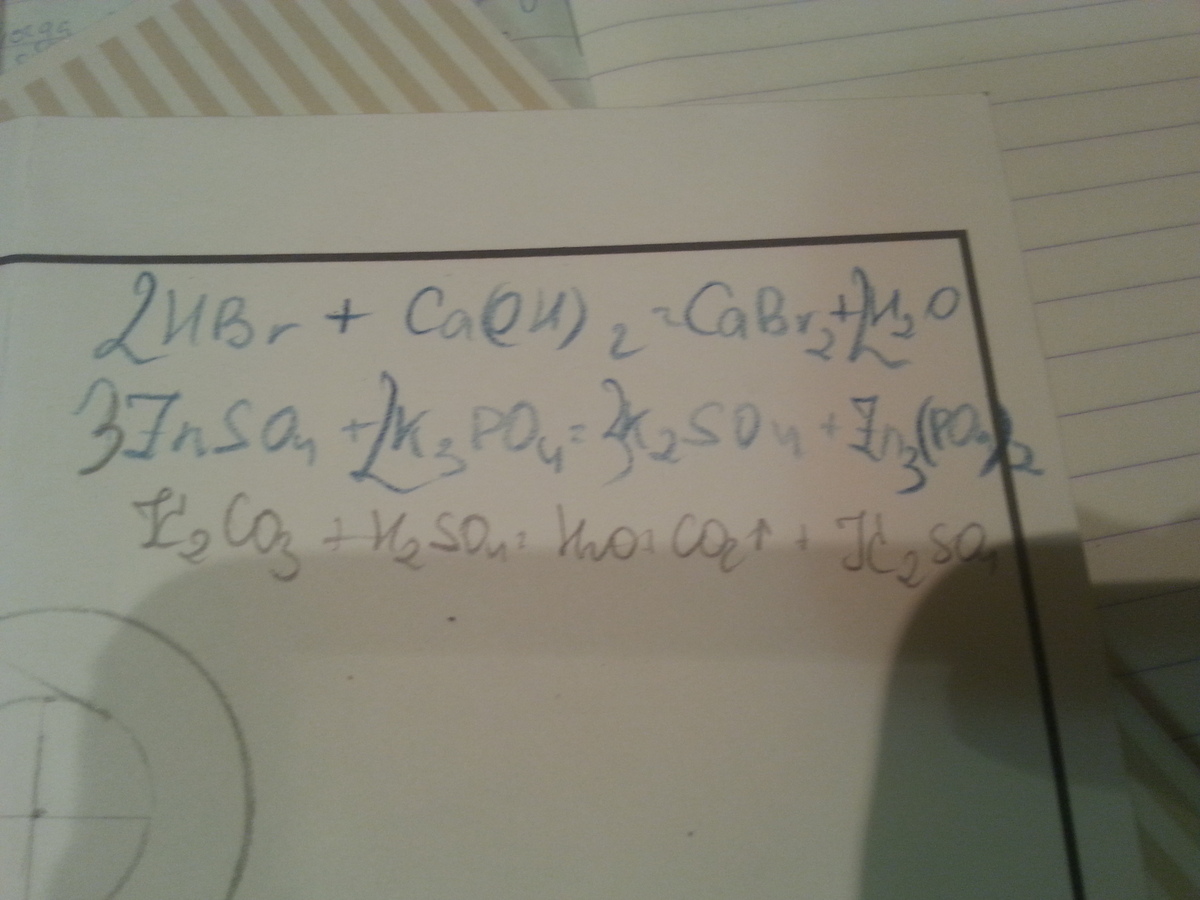 2HBr + Ca(OH)2 = CaBr2 + 2H2O
3ZnSO4 + 2K3PO4 = 3K2SO4 + Zn3(PO4)2
K2CO3 + H2SO4 = H2O + CO2↑ + K2SO4